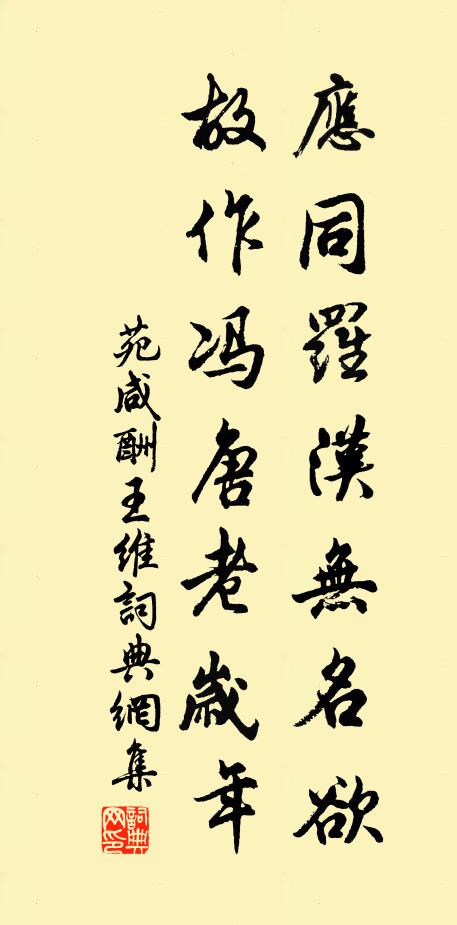 應同羅漢無名欲
故作冯唐老歲年
苑咸酬王維詞典網集
詞典网印